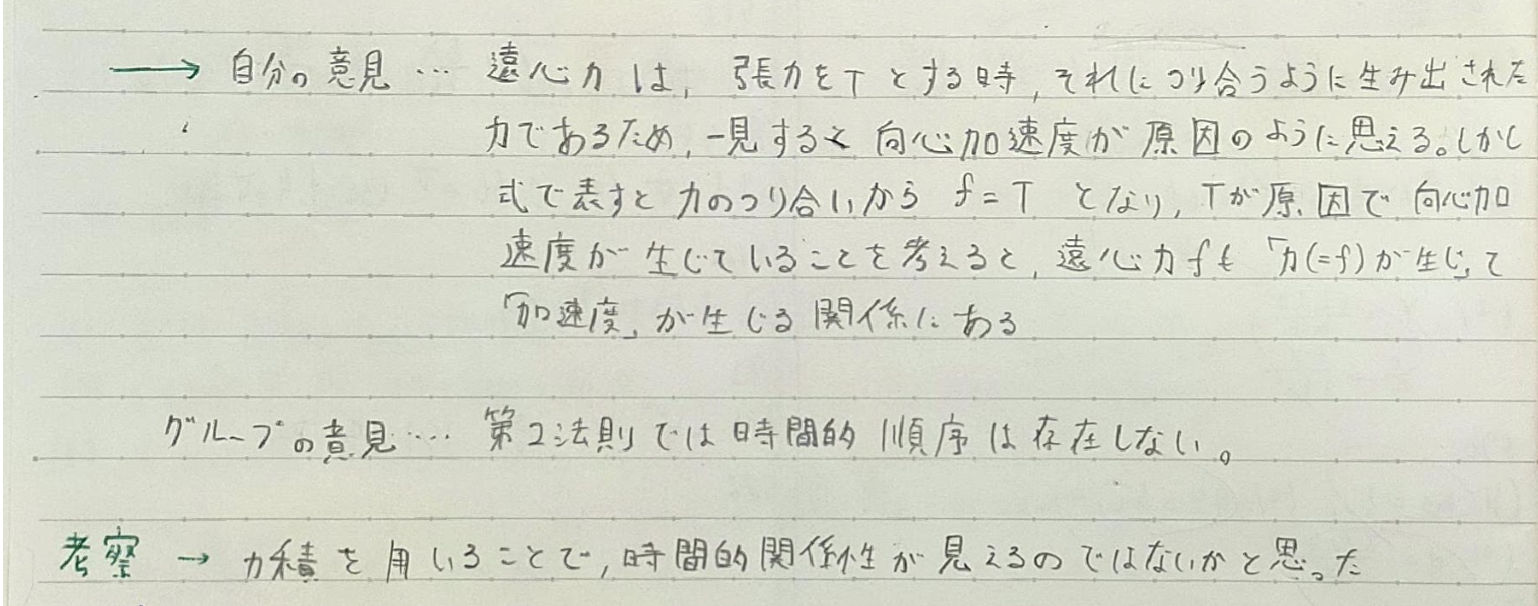 → 自分の意見… 遠心力は, 張力をTとする時, それにつり合うように生み出された
力であるため, 一見すると向心加速度が原因のように思える。しかし
式で表すと力のつり合いから f=T となり, Tが原因で向心加
速度が生じていることを考えると, 遠心力fも「力(=f)が生じ」て
「加速度」が生じる関係にある
グループの意見…. 第2法則では時間的順序は存在しない。
考察 → 力積を用いることで, 時間的関係性が見えるのではないかと思った